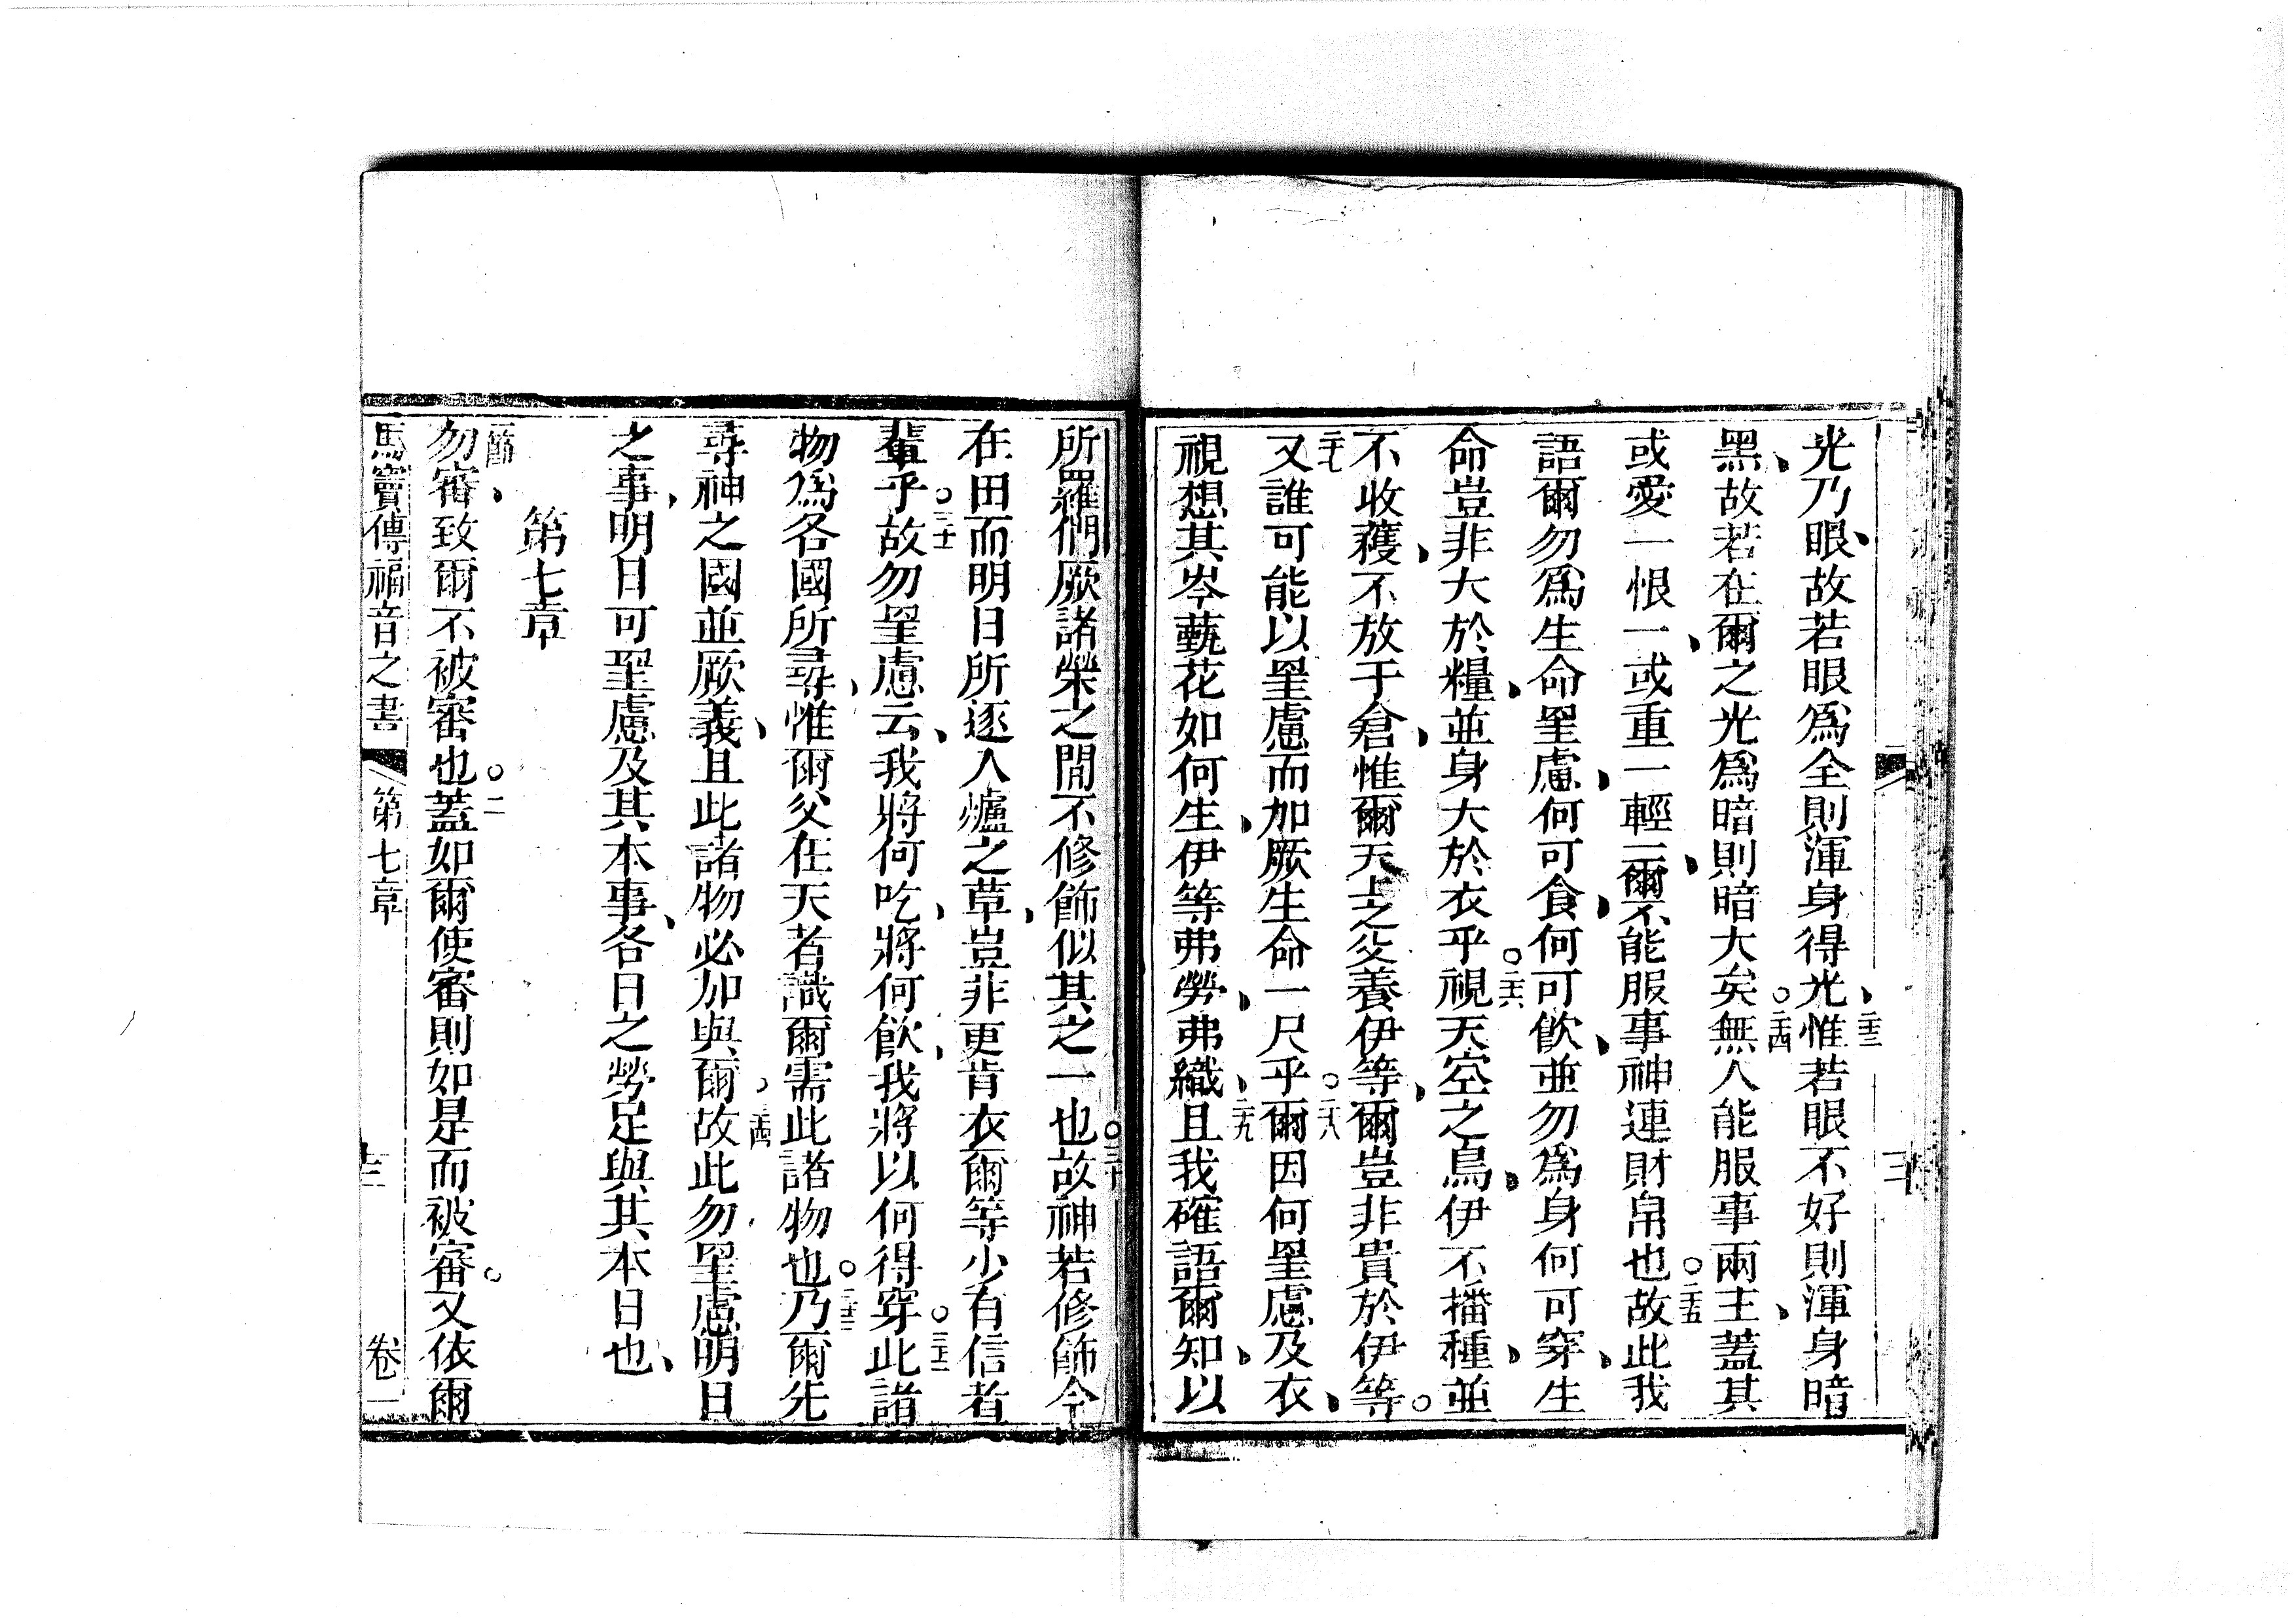 光乃眼、故若眼爲全則渾身得光、二十三惟若眼不好則渾身暗
黑、故若在爾之光爲暗則暗大矣○二十四無人能服事兩主、蓋其
或愛一恨一、或重一輕一、爾不能服事神連財帛也○二十五故此我
語爾勿爲生命罣慮、何可食、何可飲、並勿爲身何可穿、生
命豈非大於糧、並身大於衣乎○二十六視天空之鳥、伊不播種、並
不收穫、不放于倉、惟爾天上之父養伊等、爾豈非貴於伊等○
二十七又誰可能以罣慮而加厥生命一尺乎○二十八爾因何罣慮及衣、
視想其岑蓺花如何生、伊等弗勞、弗織、二十九且我確語爾知、以
所羅們厥諸榮之間不修飾似其之一也○三十故神若修飾今
在田而明日所逐入爐之草、豈非更肯衣爾等小有信者
輩乎○三十一故勿罣慮云、我將何吃、將何飲、我將以何得穿○三十二此諸
物爲各國所尋、惟爾父在天者識爾需此諸物也○三十三乃爾先
尋神之國並厥義、且此諸物必加與爾○三十四故此勿罣慮明日
之事、明日可罣慮及其本事、各日之勞足與其本日也、
第七章
一節勿審、致爾不被審也○二蓋如爾使審則如是而被審○又依爾
馬竇傳福音之書 第七章 十三 卷一